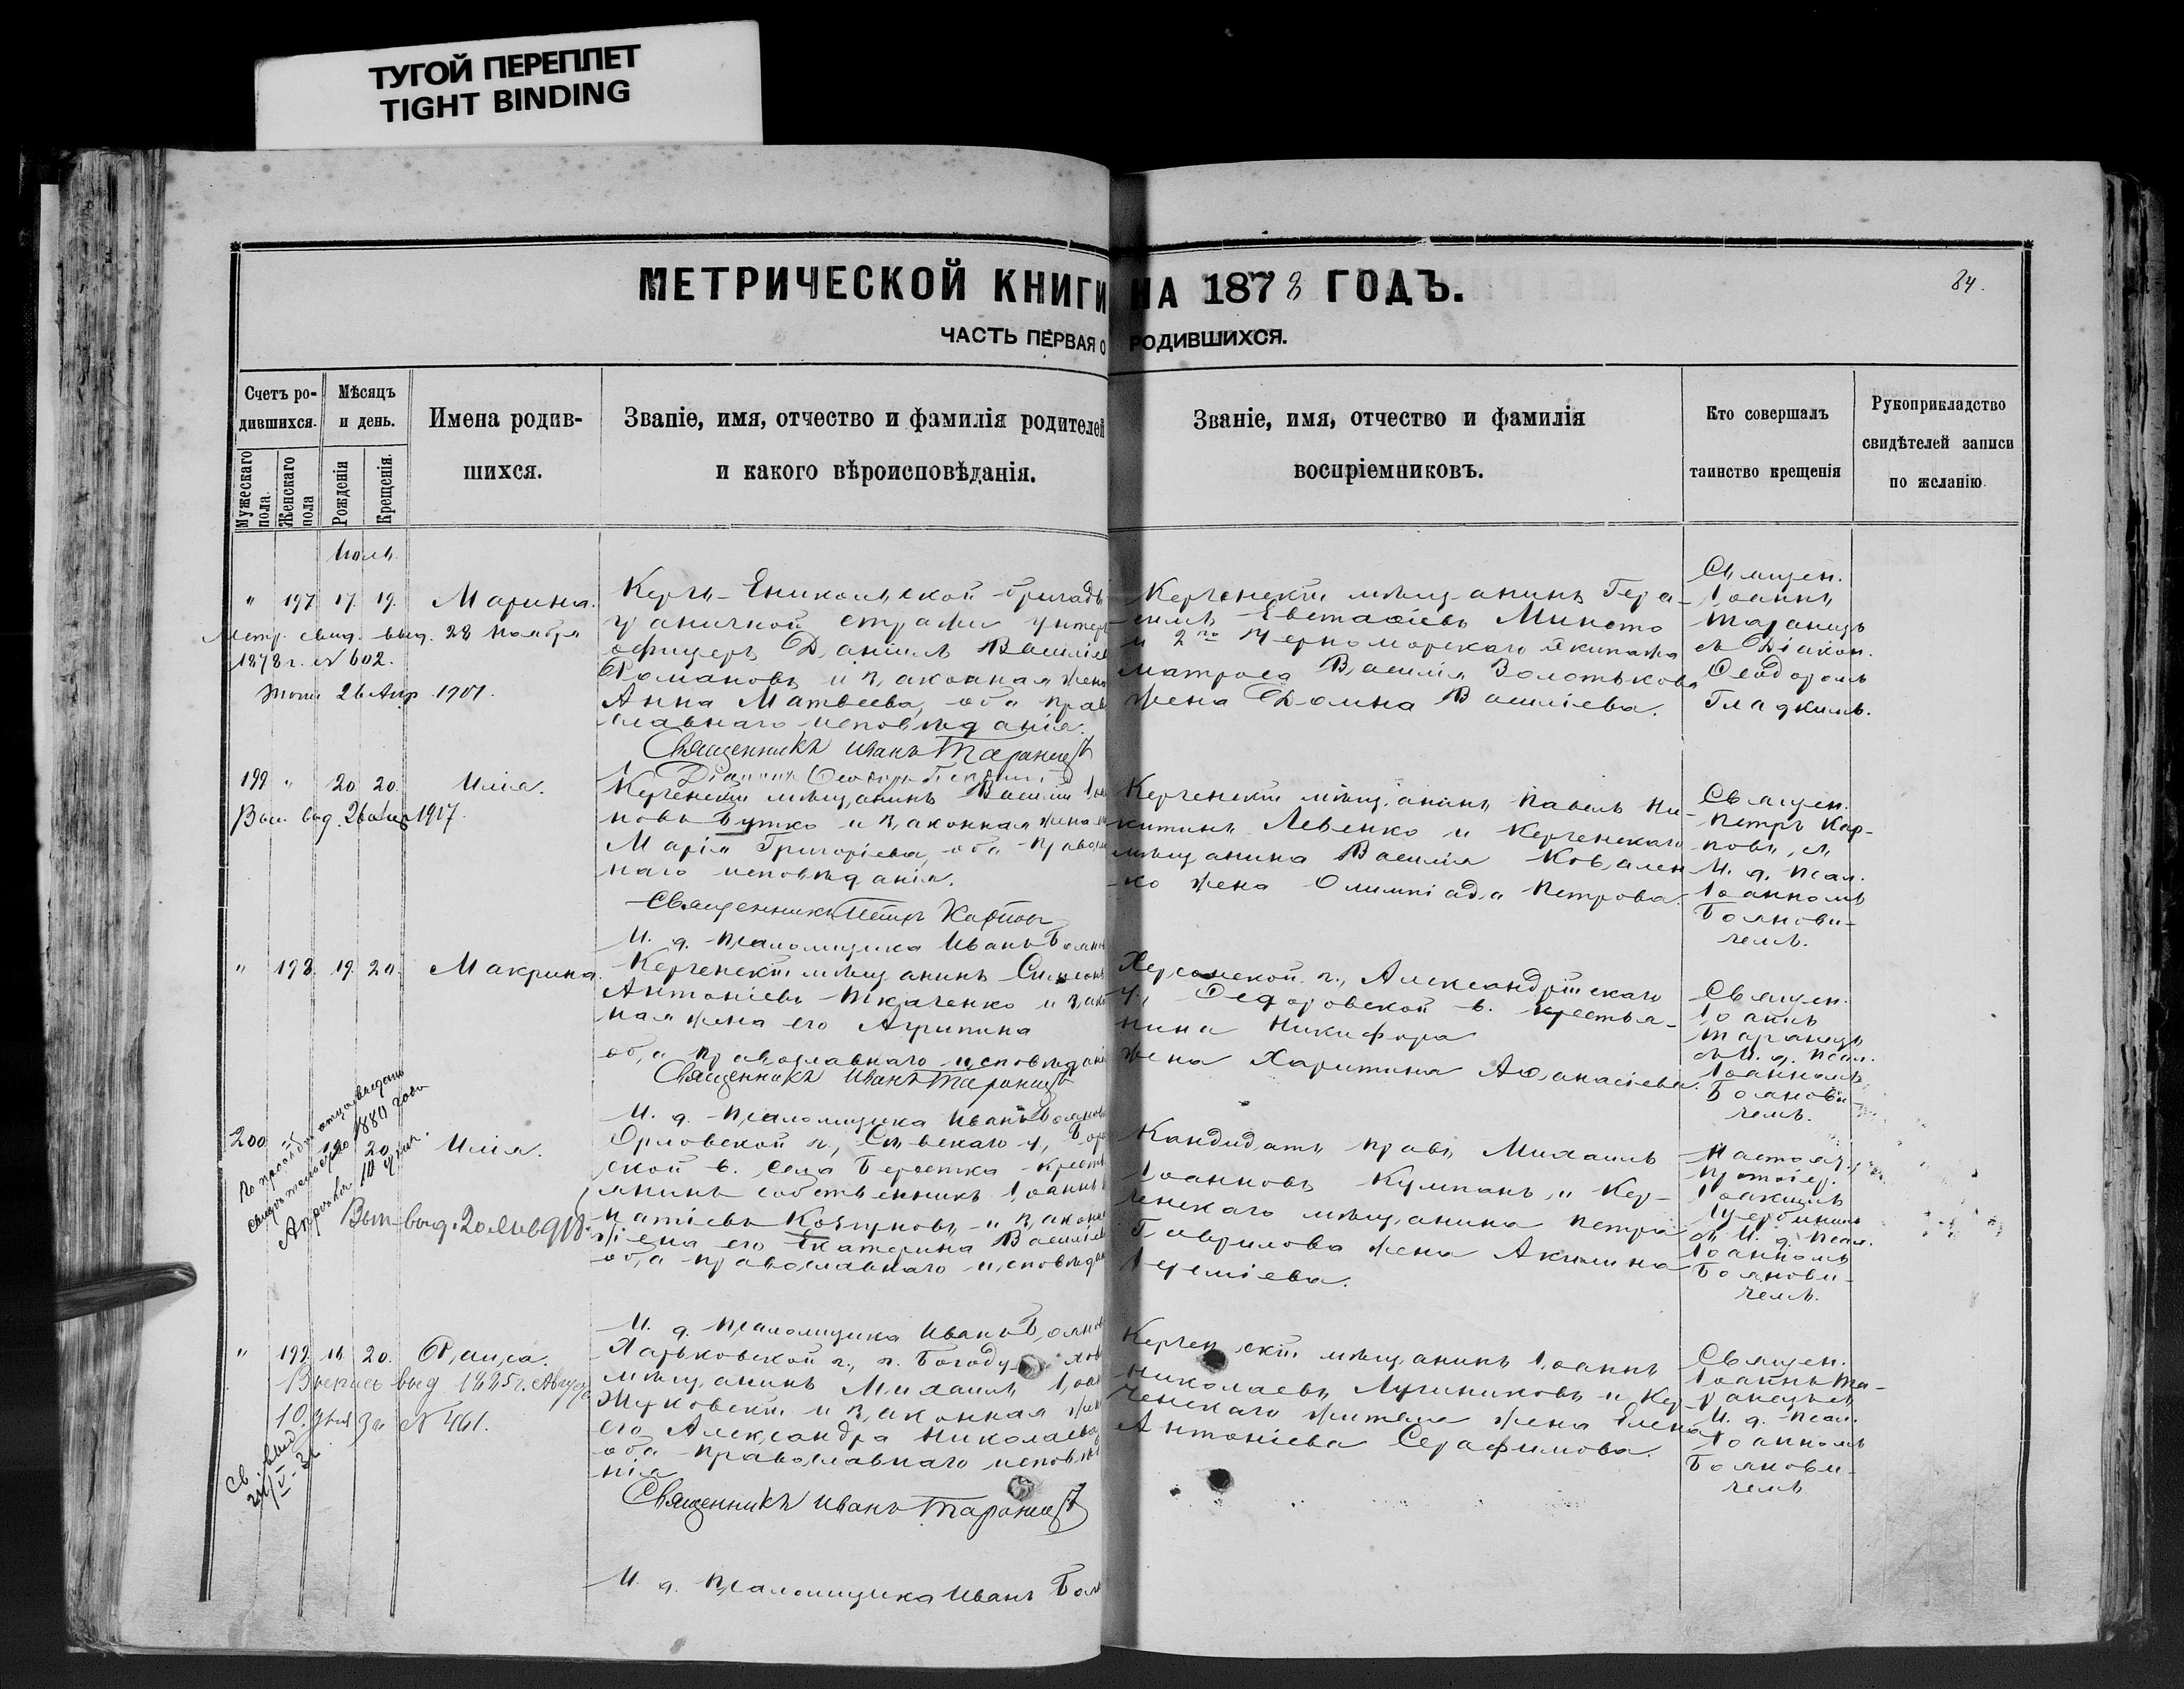 ТУГОЙ ПЕРЕПЛЕТ
TIGHT BINDING
МЕТРИЧЕСКОЙ КНИГИ НА 1878 ГОДЪ.
84.
ЧАСТЬ ПЕРВАЯ О РОДИВШИХСЯ.
Счетъ ро-
дившихся.
Мужескаго пола.
Женскаго пола
Мѣсяцъ
и день.
Рожденія
Крещенія.
Имена родив-
шихся.
Званіе, имя, отчество и фамилія родителей
и какого вѣроисповѣданія.
Званіе, имя, отчество и фамилія
воспріемниковъ.
Кто совершалъ
таинство крещенія
Рукоприкладство
свидѣтелей записи
по желанію.
Іюль.
" 197 17. 19. Марина.
Метр. свид. выд. 28 Ноября
1878 г. № 602.
26 Апр. 1901.
Керчь-Еникольской бригады
граничной стражи унтеръ
офицеръ Даніилъ Василіев
Романовъ и законная жена
Анна Матвеева, оба прав
славнаго исповѣданія.
Священникъ Иванъ Таранецъ
Керченскій мѣщанинъ Гера-
симъ Евстафіевъ
и 2го Черноморскаго Экипажа
матроса Василія Золотькова
жена Домна Василіева.
Священ.
Іоаннъ
Таранецъ
съ Діакон.
Ѳеодоромъ
Гладкимъ.
199 " 20 20. Илія.
Вып. выд. 1917.
Керченскій мѣщанинъ Василій Іоа
новъ Бутко и законная жена е
Марія Григоріева, оба правосл
наго исповѣданія.
Священникъ Петръ Карповъ
И. д. псаломщика Иванъ Боянов
Керченскій мѣщанинъ Павелъ Ни-
китинъ Левенко и Керченскаго
мѣщанина Василія Ковален
ко жена Олимпіада Петрова.
Священ.
Петръ Кар-
повъ, съ
И. д. псал.
Іоанномъ
Боянови-
чемъ.
" 198. 19. 20. Макрина.
Керченскій мѣщанинъ Симеонъ
Антоніевъ Ткаченко и зако
ная жена его Агрипина
оба православнаго исповѣдані
Священникъ Иванъ Таранецъ
И. д. псаломщика Иванъ Боянов
Херсонской г., Александрійскаго
у., Ѳедоровской в. крестья-
нина Никифора
жена Харитина Аѳанасіева.
Священ.
Іоаннъ
Таранецъ
съ И. д. псал.
Іоанномъ
Боянови-
чемъ.
200 " 20 Илія.
По прозьбѣ отца выдано
свидетельство 1880 года
Апрѣля 10 дня.
Орловской г., Сѣвскаго у.,
ской в. села Берестка крест
янинъ собственникъ Іоаннъ
натіевъ Козуновъ и законн
жена его Екатерина Василіев
оба православнаго исповѣдан
И. д. псаломщика Иванъ Боянов
Кандидатъ правъ Михаилъ
Іоанновъ Кумпанъ и Кер-
ченскаго мѣщанина Петра
Гаврилова жена Акилина
Іереміева.
Настоят.
Протоіер.
Іоакимъ
съ И. д. псал.
Іоанномъ
Боянови-
чемъ.
" 199 20. Раиса.
Выпись выд 1885 г. Август
10 дня За № 461.
Харьковской г., г. Богодухов
мѣщанинъ Михаилъ Іоан
Жуковскій и законная жен
его Александра Николаева
оба православнаго исповѣд
нія
Священникъ Иванъ Таранецъ
И. д. псаломщика Иванъ Боян
Керченскій мѣщанинъ Іоаннъ
Николаевъ Лучниковъ и Кер-
ченскаго жителя жена Елена
Антоніева Серафимова.
Священ.
Іоаннъ Та-
ранецъ съ
И. д. псал.
Іоанномъ
Боянови-
чемъ